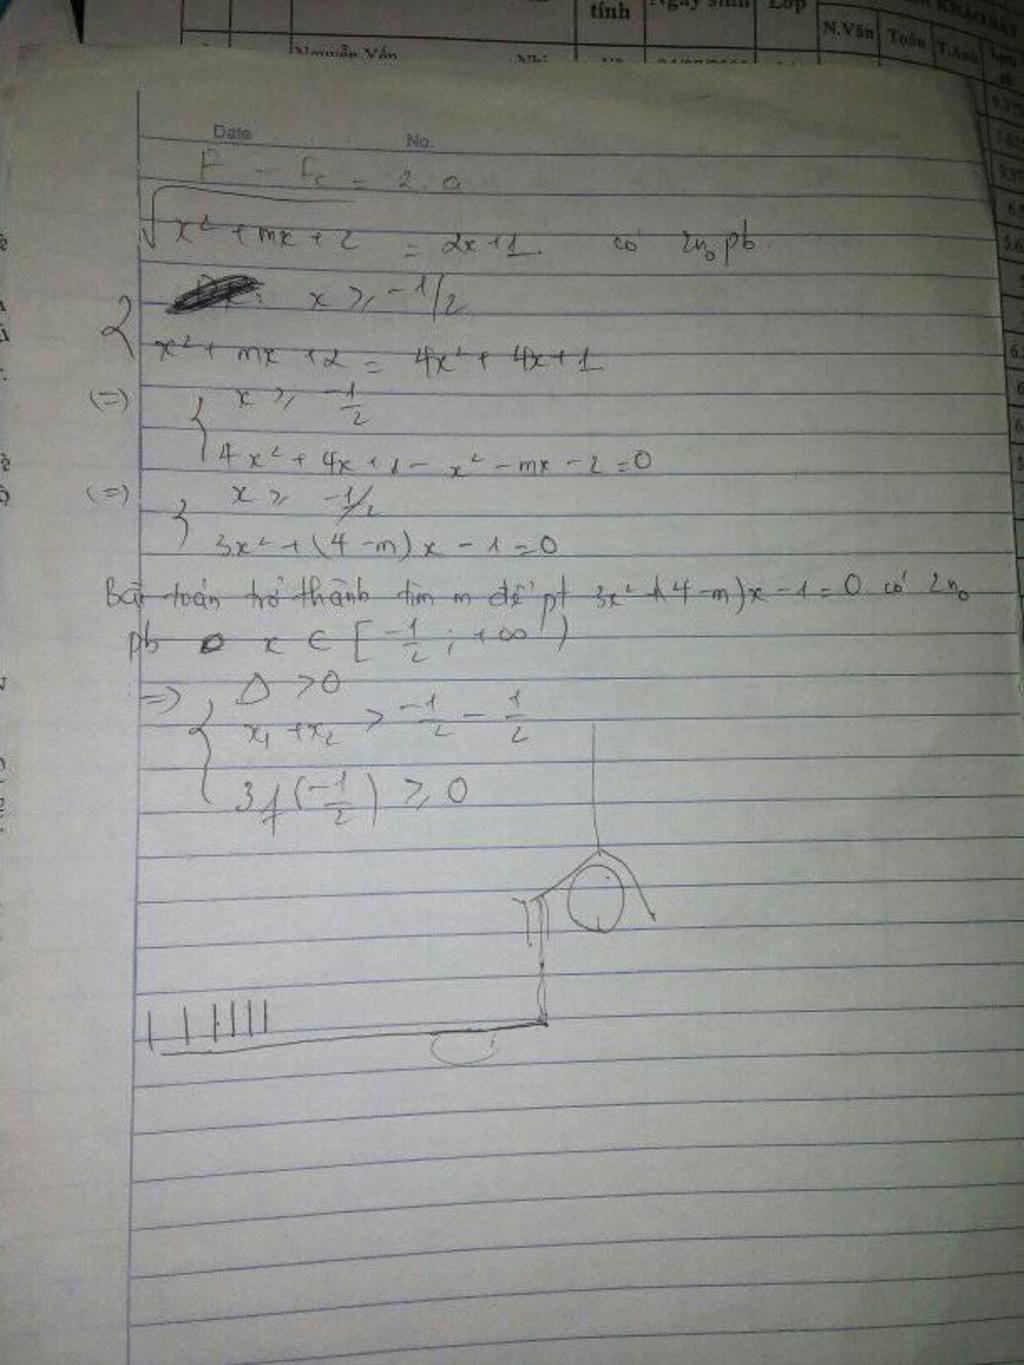 tính Ngày sinh Lớp KHẢO SÁT
N.Văn Toán T.Anh
Nguyễn Văn
Date No.
F - Fc = 2.a
√(x² + mx + 2) = 2x+1. có 2n₀ pb
x ≥ -1/2
x² + mx + 2 = 4x² + 4x + 1
(=) { x ≥ -1/2
4x² + 4x + 1 - x² - mx - 2 = 0
(=) { x ≥ -1/2
3x² + (4-m)x - 1 = 0
Bài toán trở thành tìm m để pt 3x² + (4-m)x - 1 = 0 có 2n₀
pb x ∈ [-1/2 ; +∞)
=> { Δ > 0
x₁ + x₂ > -1/2 - 1/2
3f(-1/2) ≥ 0